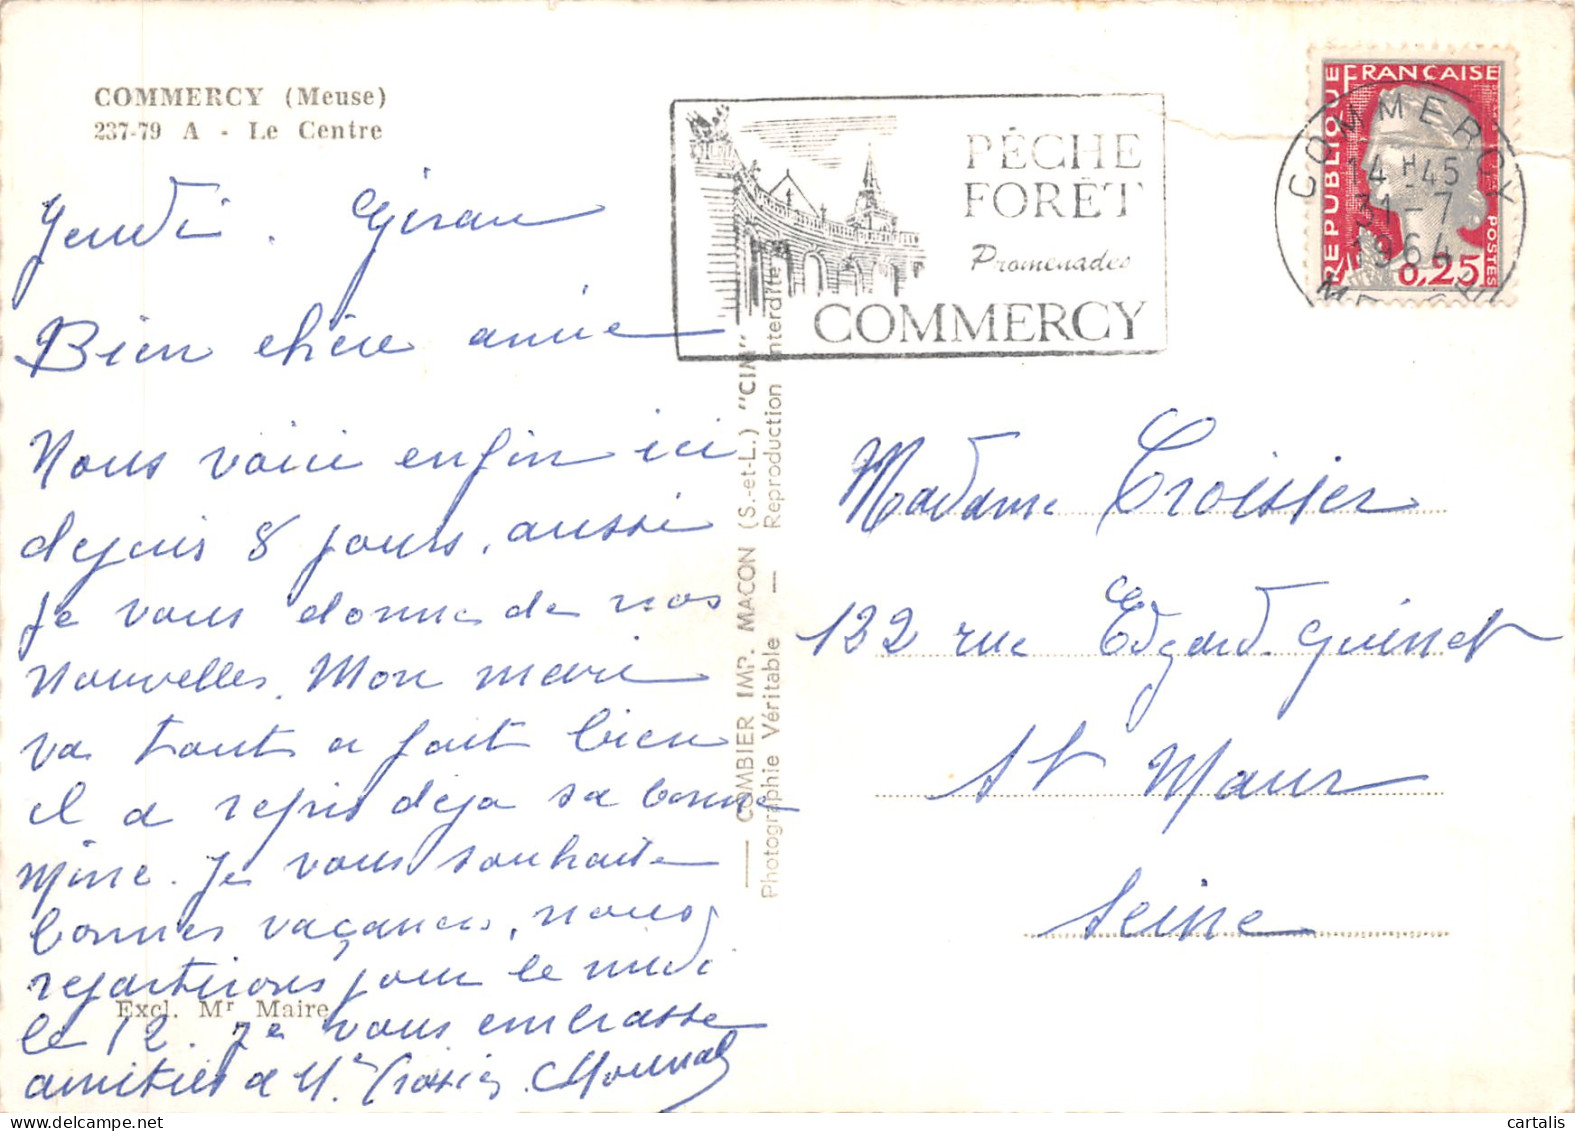 COMMERCY (Meuse)
237-79 A - Le Centre
Jeudi.
Bien chère amie
Nous voici enfin ici
depuis 8 jours, aussi
je vous donne de nos
nouvelles. Mon mari
va tout a fait bien
il a repris deja sa bonne
mine. Je vous souhaite
bonnes vacances, nous
repartirons pour le midi
le 12. Je vous embrasse
amitiés a Mr Croisier.
Excl. Mr Maire
COMBIER IMP. MACON (S.-et-L.) "CIM"
Photographie Véritable — Reproduction interdite
PÊCHE
FORÊT
Promenades
COMMERCY
RÉPUBLIQUE FRANÇAISE
POSTES
0,25
COMMERCY
14 H 45
31-7
1964
MEUSE
Madame Croisier
122 rue Edgard Guinet
St Maur
Seine
cartalis